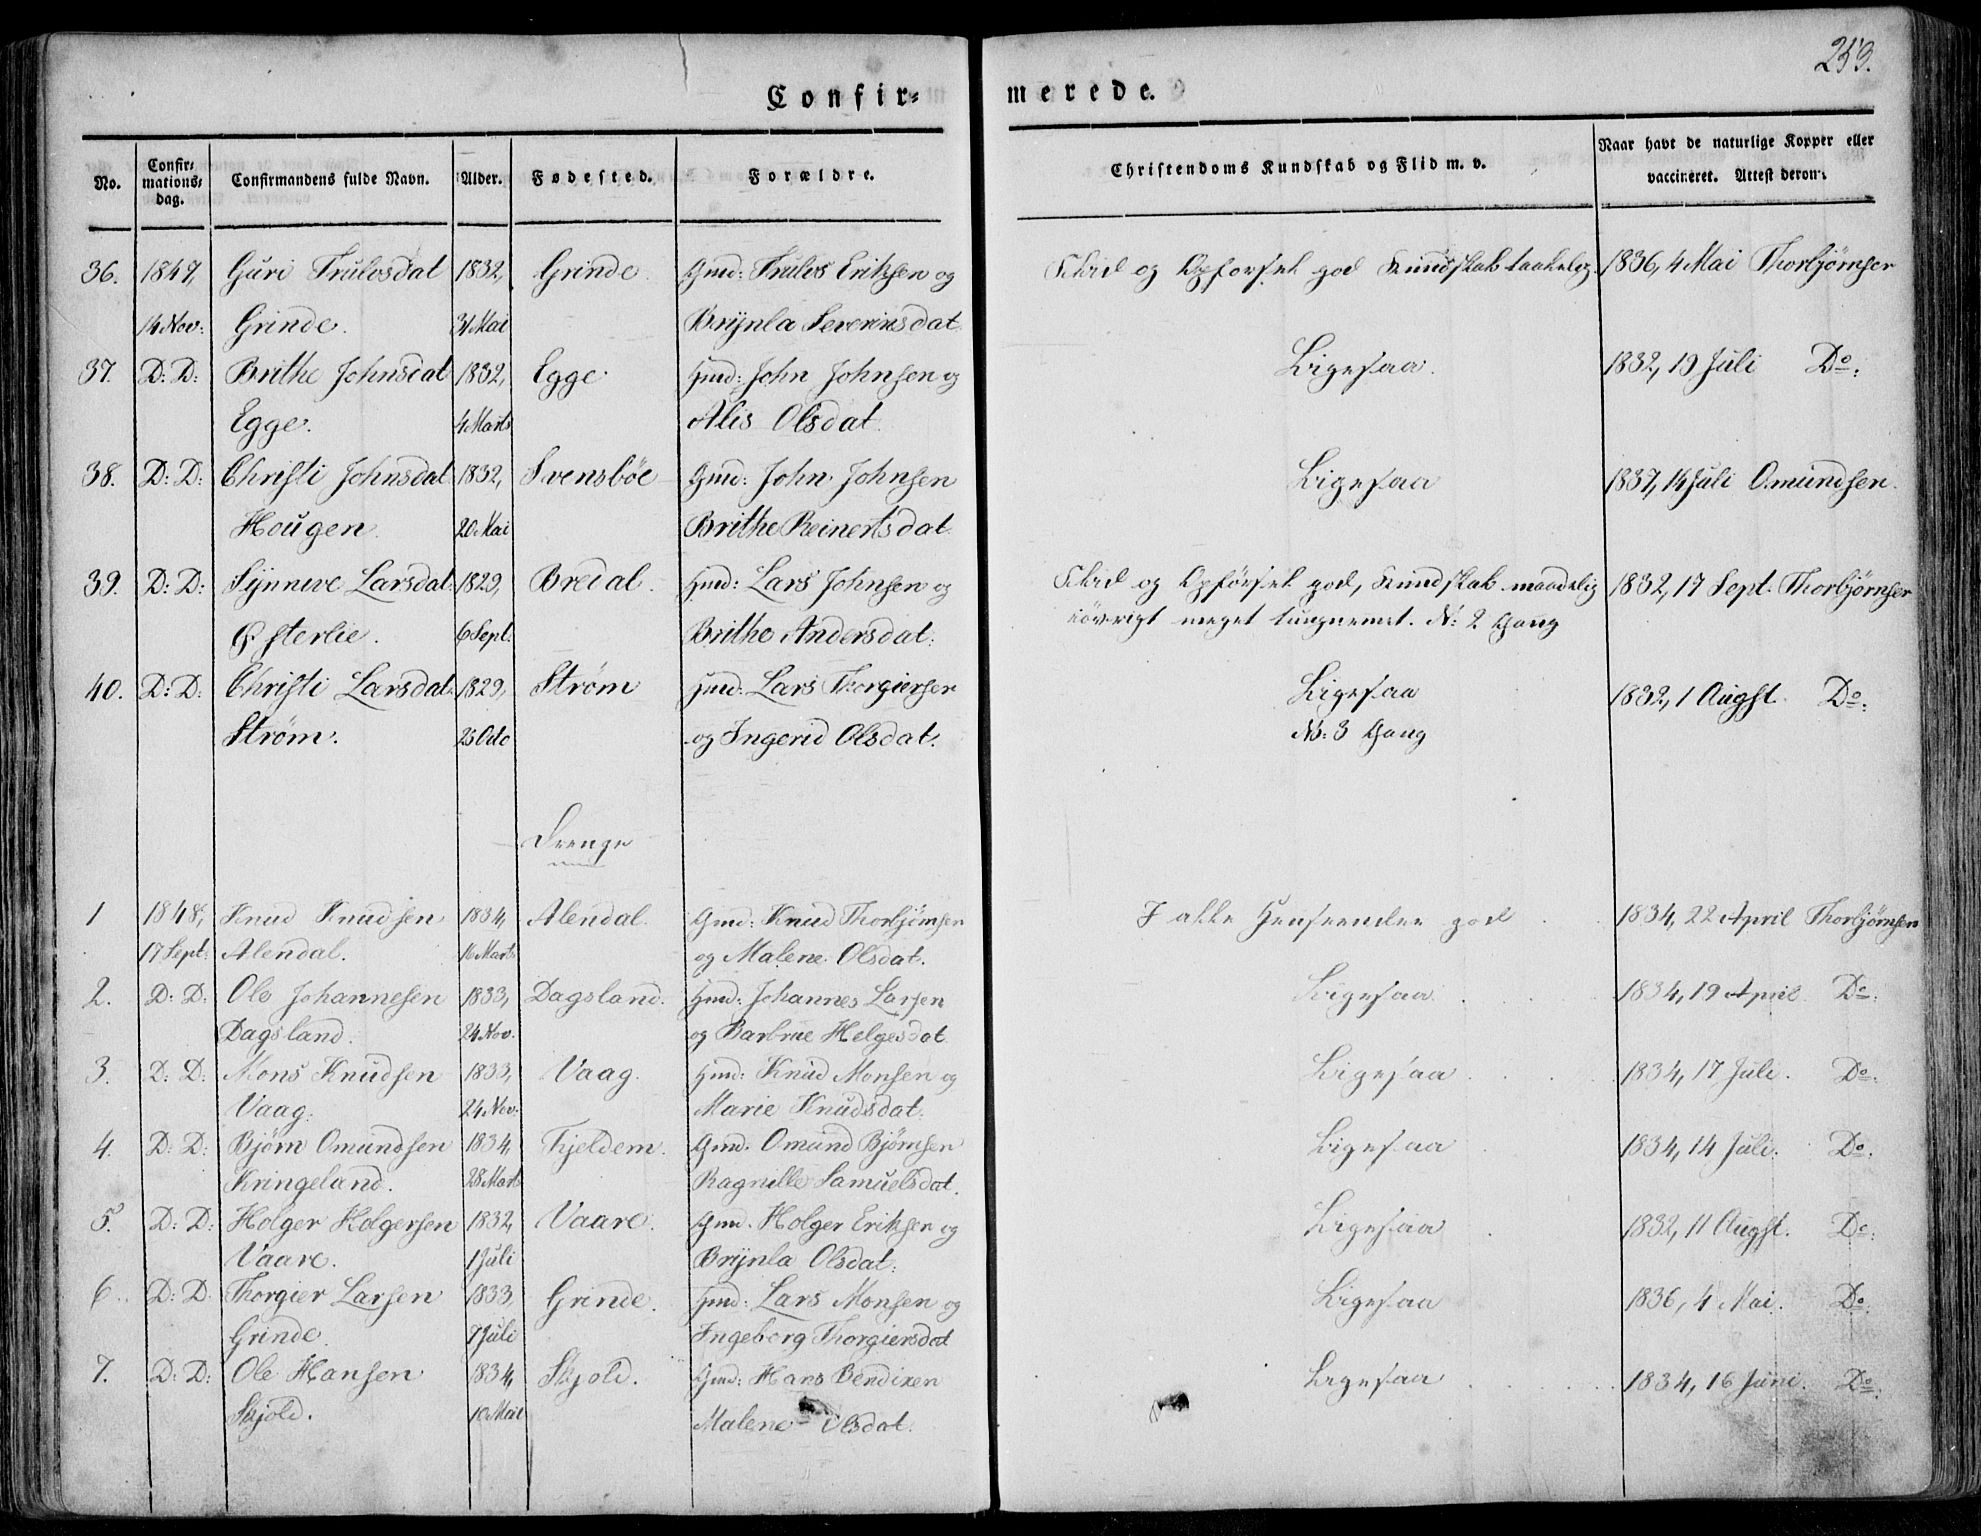 253.
Confir= merede.
No. Confir=mations=dag. Confirmandens fulde Navn. Alder. Fødested. Forældre. Christendoms Kundskab og Flid m. v. Naar havt de naturlige Kopper eller vaccineret. Attest derom.
36. 1847, Guri Trulosdat 1832, Grinde. Gmd: Trulos Eriksen og Skid og Opførsel god Kundskab taalelig 1836, 4 Mai Thorbjørnsen
14 Nov: Grinde. 31 Mai Brynla Severinsdat
37. D: D: Brithe Johnsdat 1832, Egge. Hmd: John Johnsen og Ligesaa. 1832, 19 Juli Do:
Egge. 4 Marts Alis Olsdat.
38. D: D: Christi Johnsdat 1832, Svensböe Gmd: John Johnsen Ligesaa 1837, 14 Juli Omundsen.
Hougen. 20 Mai Brithe Reinertsdat
39. D: D: Synneve Larsdat 1829, Bredal. Hmd: Lars Johnsen og Skid og Opførsel god, Kundskab maadelig 1832, 17 Sept. Thorbjørnsen
Østerlie. 6 Sept. Brithe Andersdat. iøvrigt meget tungnemmet. N: 2 Gang
40. D: D: Christi Larsdat 1829, Strøm Hmd: Lars Thorgiersen Ligesaa 1832, 1 Augst. Do:
Strøm. 23 Octo og Ingerid Olsdat. N: 3 Gang
Drenge
1 1848, Knud Knudsen 1834, Alendal. Gmd: Knud Thorbjørnsen I alle Henseender god 1834, 22 April Thorbjørnsen
17 Sept: Alendal. 16 Marts og Malene Olsdat.
2. D: D: Ole Johannesen 1833, Dagsland. Hmd: Johannes Larsen Ligesaa 1834, 19 April. Do:
Dagsland. 24 Nov. og Barbrue Helgesdat
3. D: D: Mons Knudsen 1833, Vaag. Hmd: Knud Monsen og Ligesaa 1834, 17 Juli. Do:
Vaag. 24 Nov: Marie Knudsdat.
4. D: D: Bjørn Omundsen 1834, Fjeldem. Gmd. Omund Bjørnsen Ligesaa 1834, 14 Juli. Do:
Kringeland. 28 Marts Ragnille Samuelsdat.
5. D: D: Holger Holgersen 1832, Vaare. Gmd. Holger Eriksen og Ligesaa 1832, 11 Augst. Do:
Vaare. 1 Juli Brynla Olsdat.
6. D: D. Thorgier Larsen 1833, Grinde. Hmd: Lars Monsen og Ligesaa 1836, 4 Mai. Do:
Grinde. 7 Juli Ingeborg Thorgiersdat
7. D: D: Ole Hansen 1834, Skjold. Gmd: Hans Bendixen Ligesaa 1834, 16 Juni. Do:
Skjold. 10 Mai Malene Olsdat.